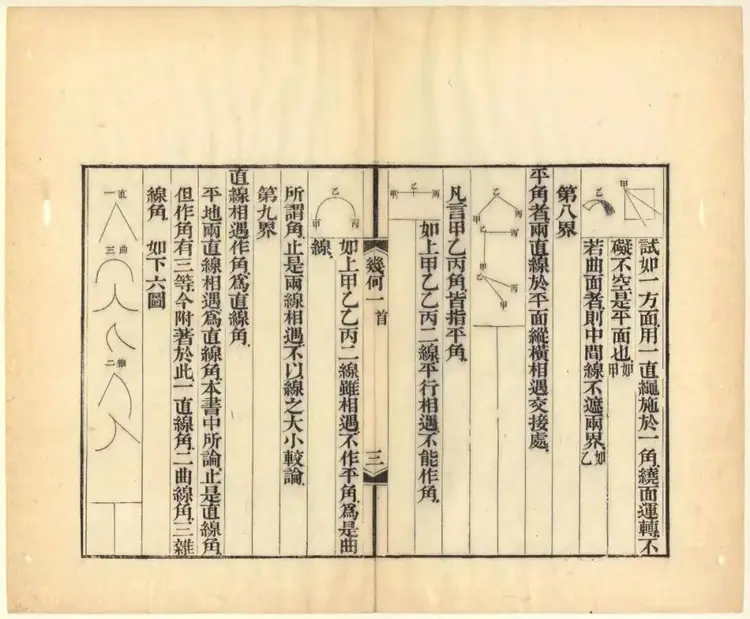 甲
試如一方面用一直繩施於一角繞面運轉不
礙不空是平面也如甲
乙
若曲面者則中間線不遮兩界如乙
第八界
平角者兩直線於平面縱橫相遇交接處
乙
甲 丙
乙 丙
甲 丙
乙
甲
凡言甲乙丙角皆指平角
甲 乙 丙
如上甲乙乙丙二線平行相遇不能作角
幾何一首
三
乙
甲 丙
如上甲乙乙丙二線雖相遇不作平角為是曲
線
所謂角止是兩線相遇不以線之大小較論
第九界
直線相遇作角為直線角
平地兩直線相遇為直線角本書中所論止是直線角
但作角有三等今附著於此一直線角二曲線角三雜
線角 如下六圖
一 直
三 曲
二 雜